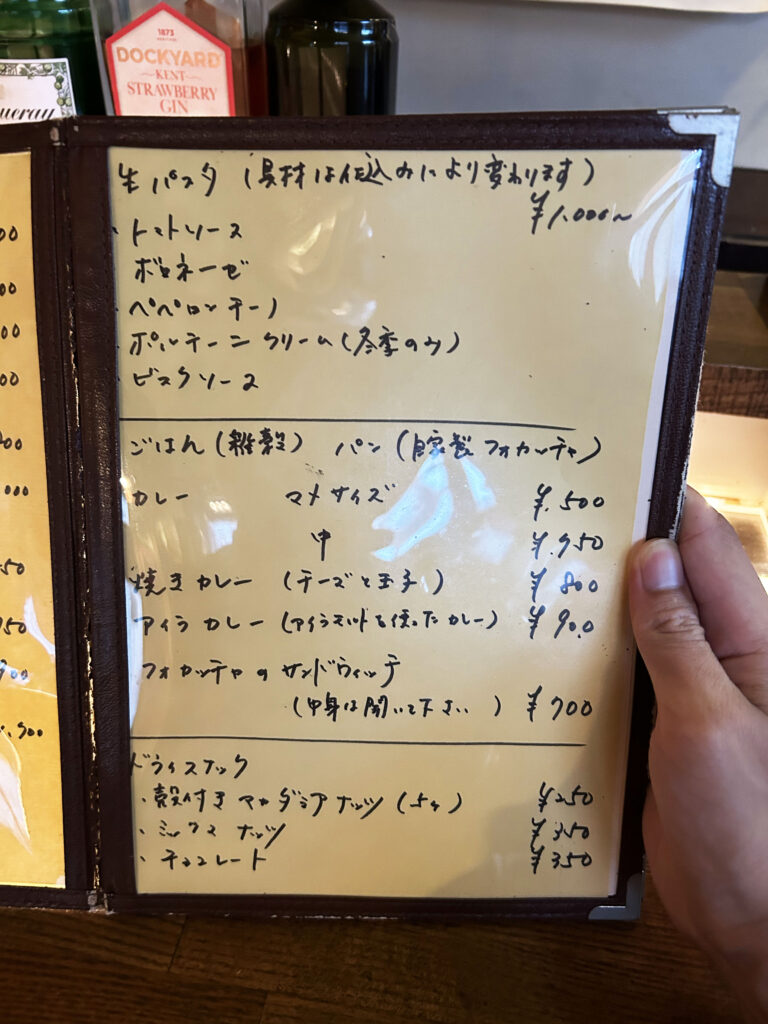 1873
DOCKYARD
KENT
STRAWBERRY
GIN
生パスタ (具材は仕込みにより変わります)
¥1,000〜
・トマトソース
・ボロネーゼ
・ペペロンチーノ
・ポルチーニクリーム(冬季のみ)
・ビスクソース
ごはん(雑穀) パン(自家製フォカッチャ)
カレー マメサイズ ¥.500
中 ¥.950
焼きカレー (チーズと玉子) ¥800
アイラカレー(アイラモルトを使ったカレー) ¥900
フォカッチャのサンドウィッチ
(中身は聞いて下さい) ¥700
ドライスナック
・殻付きマカダミアナッツ(5ヶ) ¥250
・ミックスナッツ ¥350
・チョコレート ¥350